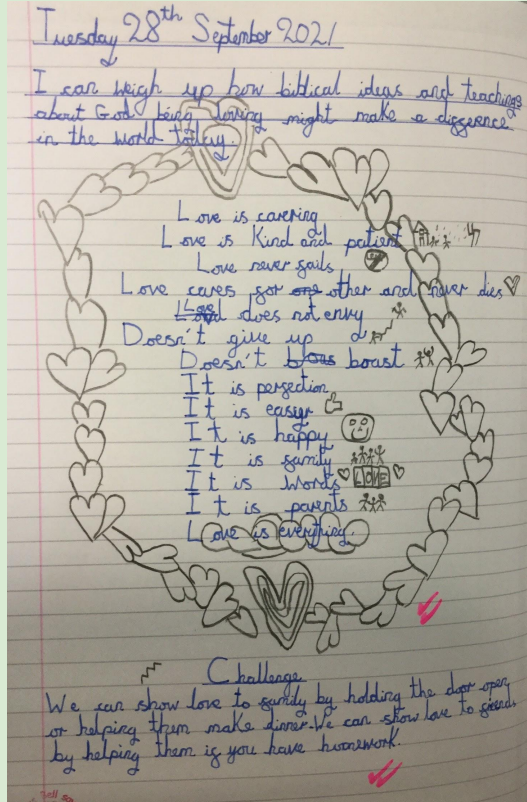 Tuesday 28th September 2021
I can weigh up how biblical ideas and teachings
about God being loving might make a difference
in the world today.
Love is carering
Love is Kind and patient
Love never fails
Love cares for one other and never dies
Love does not envy
Doesn't give up
Doesn't boast
It is perfection
It is easier
It is happy
It is family
It is words LOVE
It is parents
Love is everything.
Challenge
We can show love to family by holding the door open,
or helping them make dinner. We can show love to friends
by helping them if you have homework.